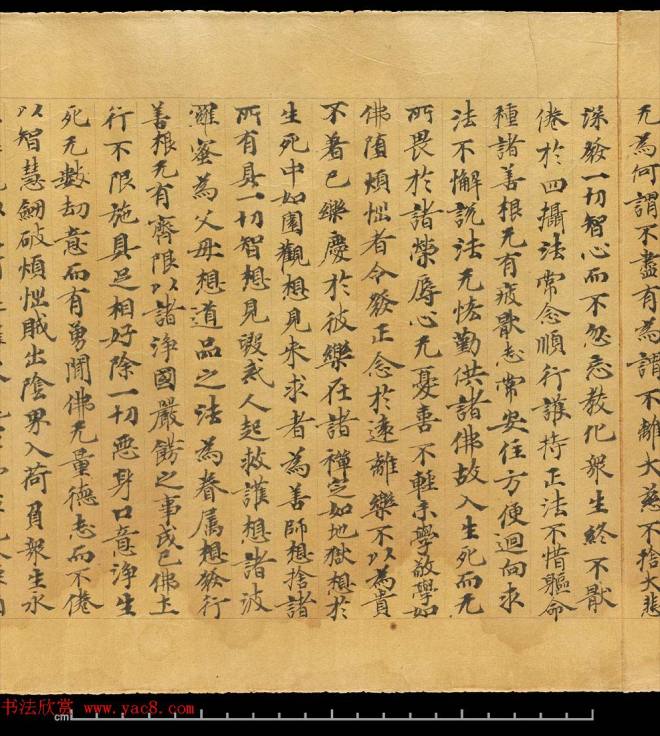 无為何謂不盡有為謂不離大慈不捨大悲
深發一切智心而不忽忘教化眾生終不猒
倦於四攝法常念順行護持正法不惜軀命
種諸善根无有疲猒志常安住方便迴向求
法不懈說法无悋勤供諸佛故入生死而无
所畏於諸榮辱心无憂喜不輕未學敬學如
佛墮煩惱者令發正念於遠離樂不以為貴
不著己樂慶於彼樂在諸禪定如地獄想於
生死中如園觀想見來求者為善師想捨諸
所有具一切智想見毀戒人起救護想諸波
羅蜜為父母想道品之法為眷属想發行
善根无有齊限以諸淨國嚴餝之事成己佛土
行不限施具足相好除一切惡身口意淨生
死无數劫意而有勇聞佛无量德志而不倦
以智慧劒破煩惱賊出陰界入荷負眾生永
书法欣赏 www.yac8.com
cm